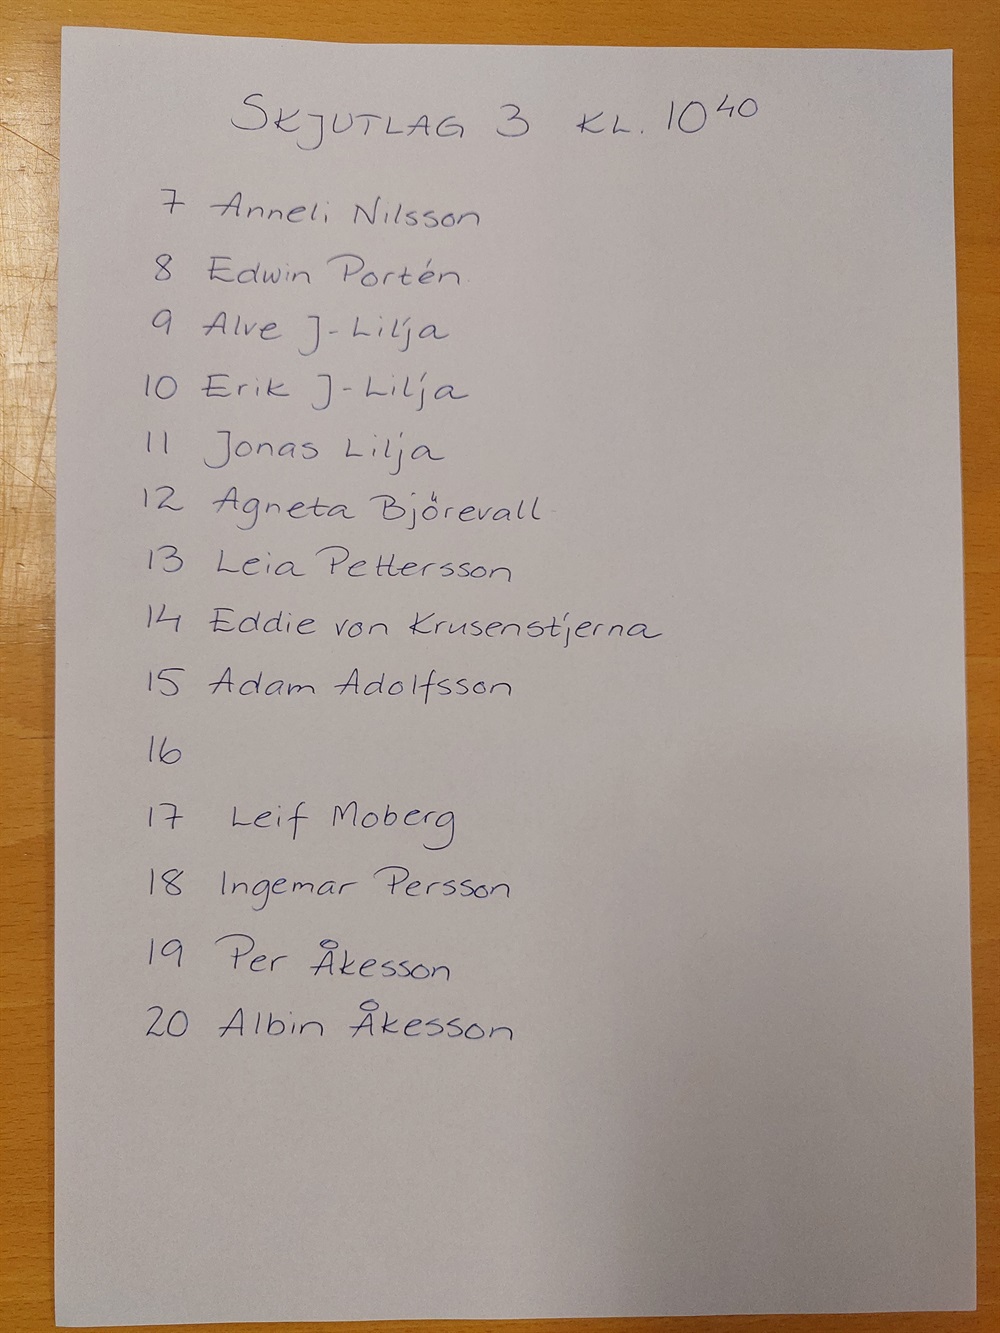 SKJUTLAG 3 KL. 10⁴⁰
7 Anneli Nilsson
8 Edwin Portén
9 Alve J-Lilja
10 Erik J-Lilja
11 Jonas Lilja
12 Agneta Björevall
13 Leia Pettersson
14 Eddie von Krusenstjerna
15 Adam Adolfsson
16
17 Leif Moberg
18 Ingemar Persson
19 Per Åkesson
20 Albin Åkesson